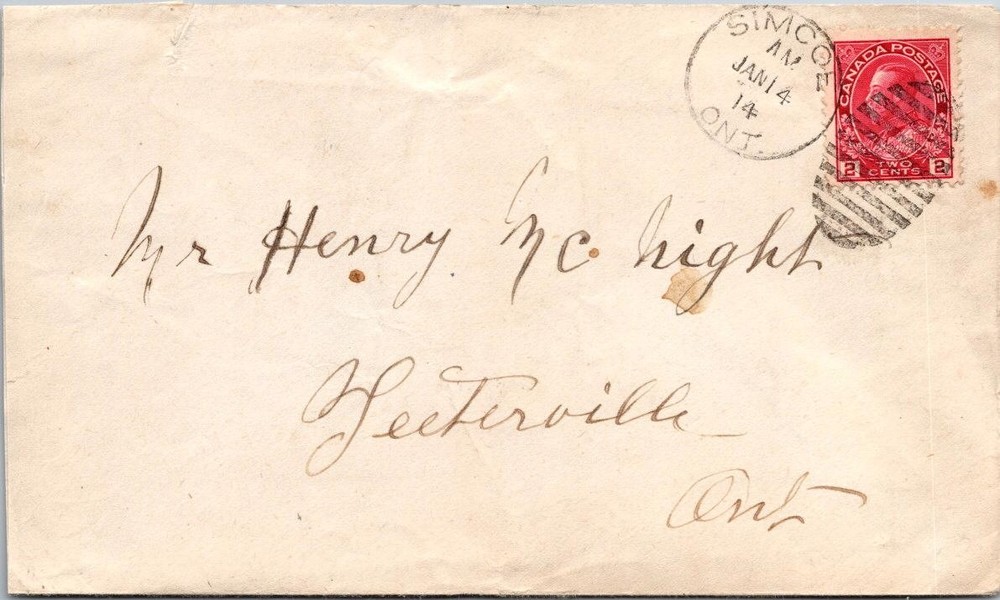 SIMCOE
AM
JAN 14
14
ONT.
CANADA POSTAGE
2 TWO CENTS 2
Mr Henry Mc Night
Teeterville
Ont